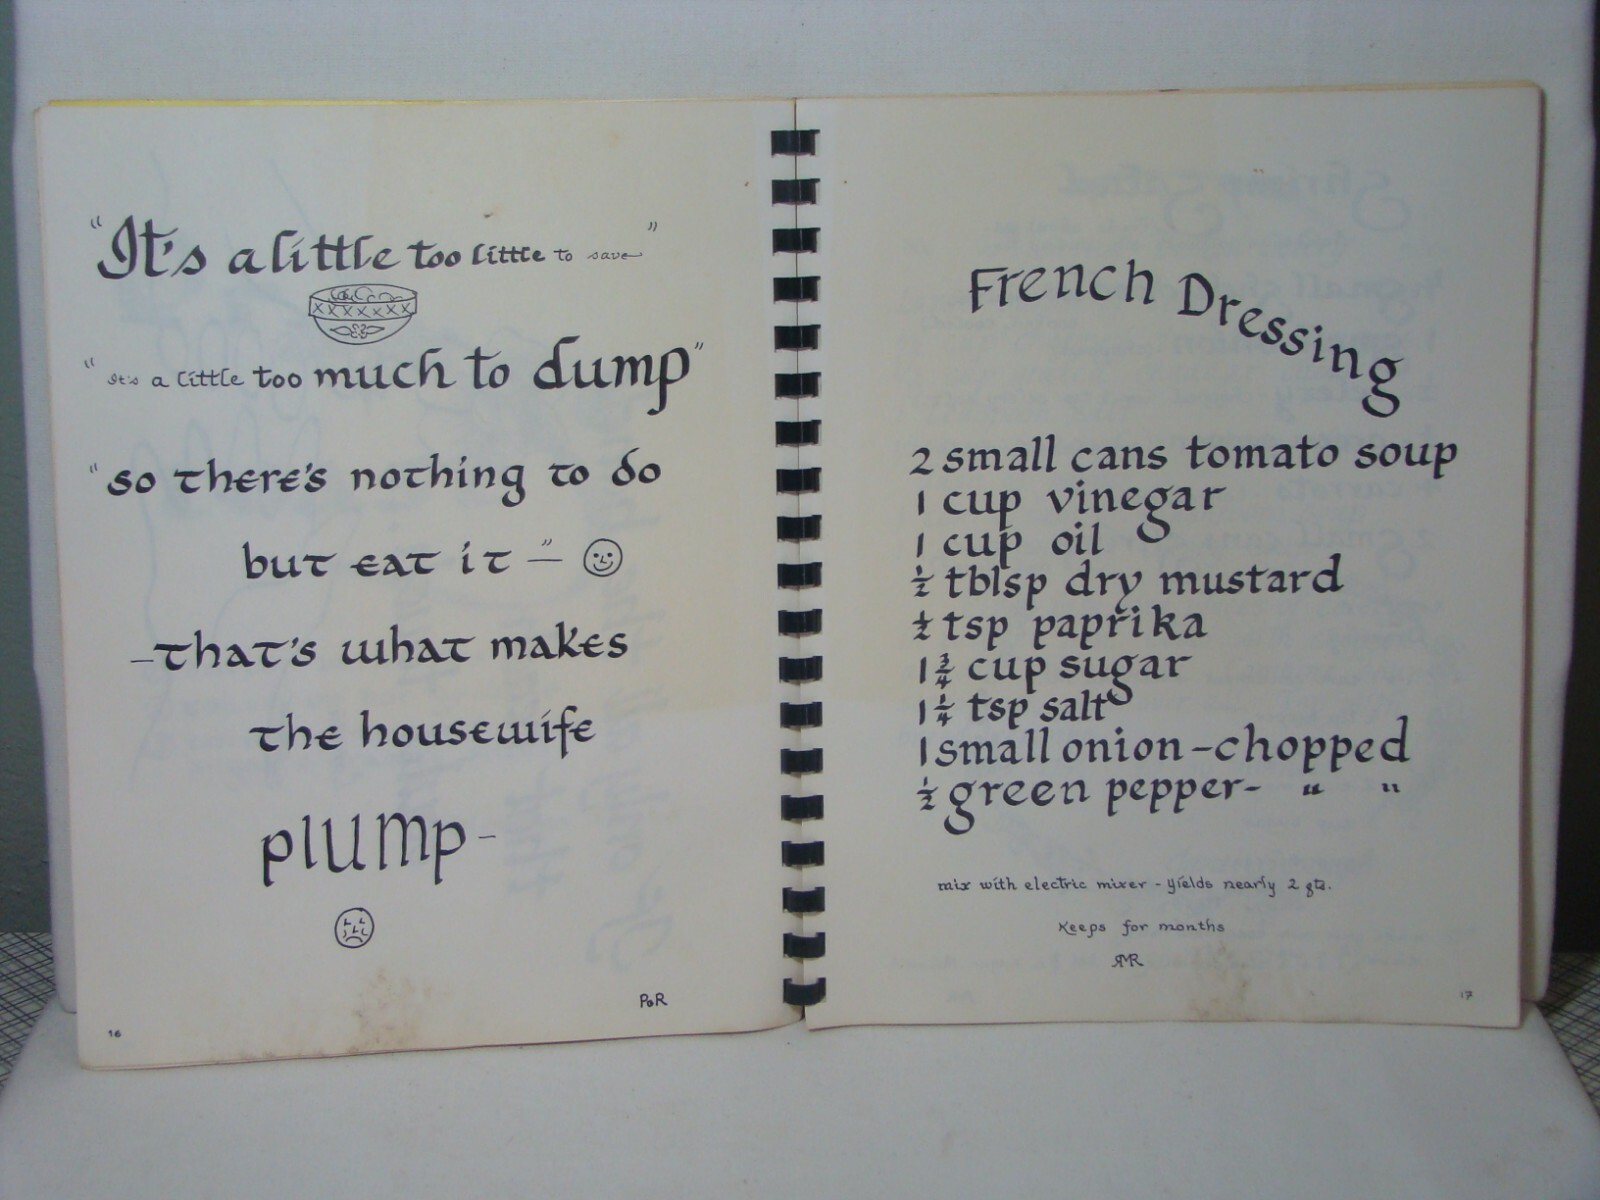 "It's a little too little to save"
"It's a little too much to dump"
"so there's nothing to do
but eat it" –
– that's what makes
the housewife
plump –
PoR
16
French Dressing
2 small cans tomato soup
1 cup vinegar
1 cup oil
½ tblsp dry mustard
½ tsp paprika
1 ¾ cup sugar
1 ¼ tsp salt
1 small onion – chopped
½ green pepper - " "
mix with electric mixer - yields nearly 2 qts.
Keeps for months
RMR
17